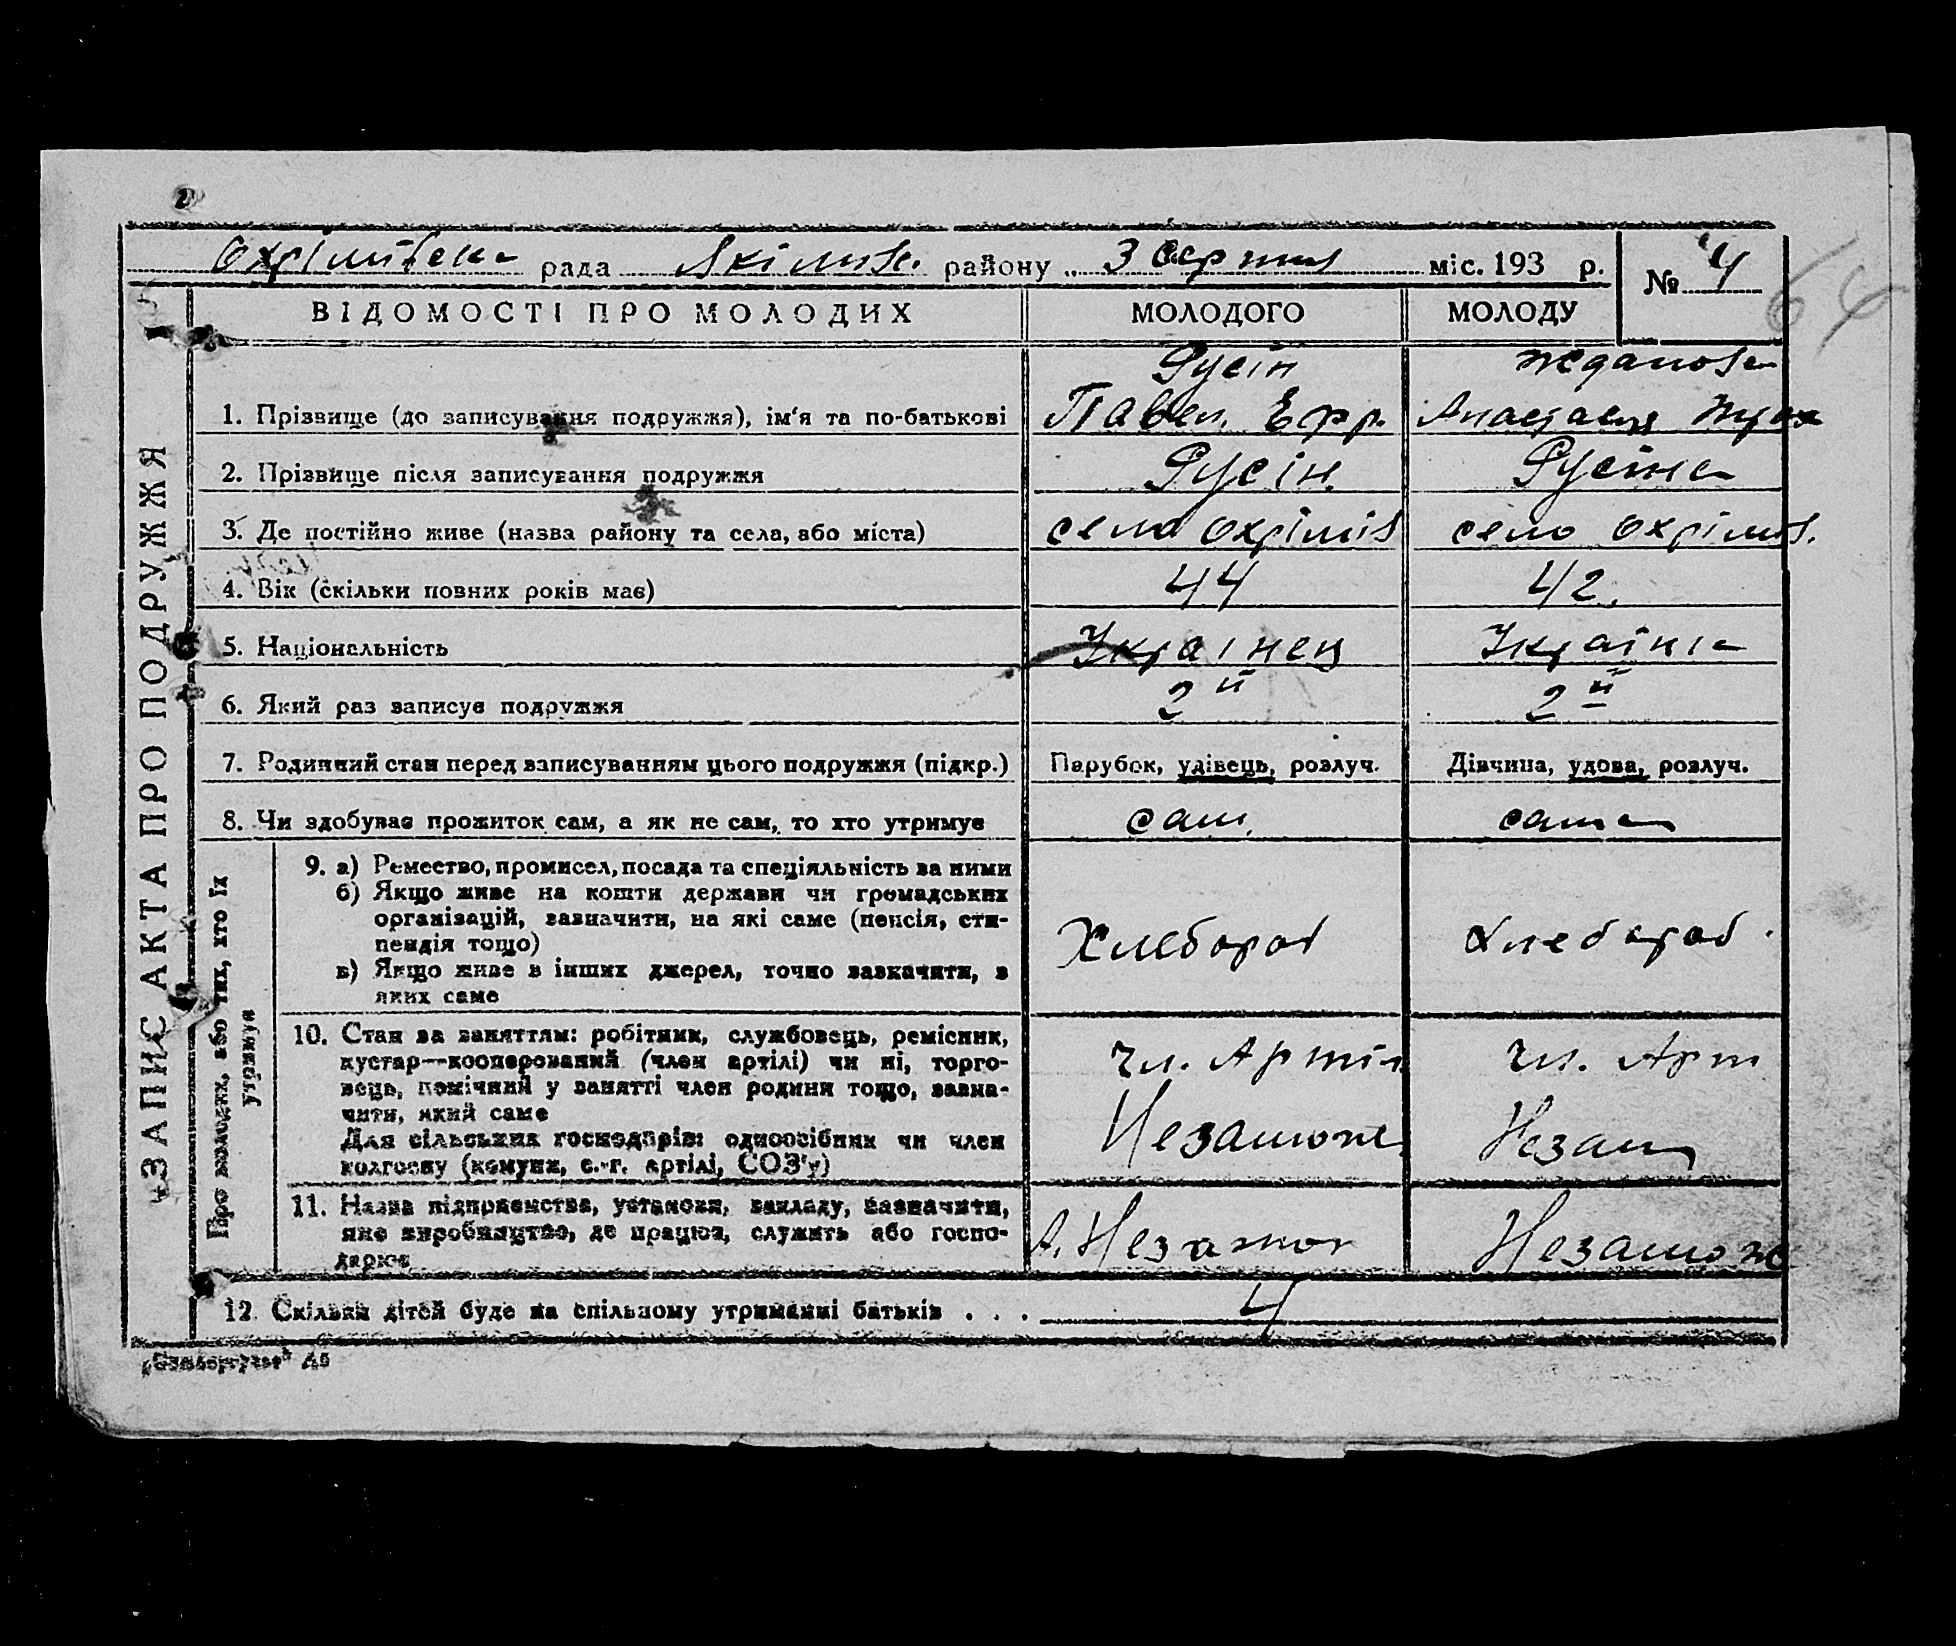 Охрімівська рада Якимівс. району „ 3 серпня міс. 193 р. № 4
64
ЗАПИС АКТА ПРО ПОДРУЖЖЯ
ВІДОМОСТІ ПРО МОЛОДИХ МОЛОДОГО МОЛОДУ
Русін Жданова
1. Прізвище (до записування подружжя), ім'я та по-батькові Павел. Ефр. Анастасия
2. Прізвище після записування подружжя Русін Русіна
3. Де постійно живе (назва району та села, або міста) село Охрімів село Охрімів.
4. Вік (скільки повних років має) 44 42.
5. Національність Українец Українка
6. Який раз записує подружжя 2й 2й
7. Родинний стан перед записуванням цього подружжя (підкр.) Парубок, удівець, розлуч. Дівчина, удова, розлуч.
8. Чи здобуває прожиток сам, а як не сам, то хто утримує сам. сама
Про молодих, або тих, хто їх
утримує
9. а) Ремество, промисел, посада та спеціяльність за ними
б) Якщо живе на кошти держави чи громадських
організацій, зазначити, на які саме (пенсія, сти-
пендія тощо)
в) Якщо живе з інших джерел, точно зазначити, з
яких саме
Хлебороб Хлебороб.
10. Стан за заняттям: робітник, службовець, ремісник,
кустар—кооперований (член артілі) чи ні, торго-
вець, помічний у занятті член родини тощо, зазна-
чити, який саме
Для сільських господарів: одноосібник чи член
колгоспу (комуни, с.-г. артілі, СОЗ'у)
чл. Артіл чл. Арт
Незамож Незам
11. Назва підприємства, установи, закладу, зазначити,
яке виробництво, де працює, служить або госпо-
дарює
А. Незамож Незамож
12. Скільки дітей буде на спільному утриманні батьків . . . 4